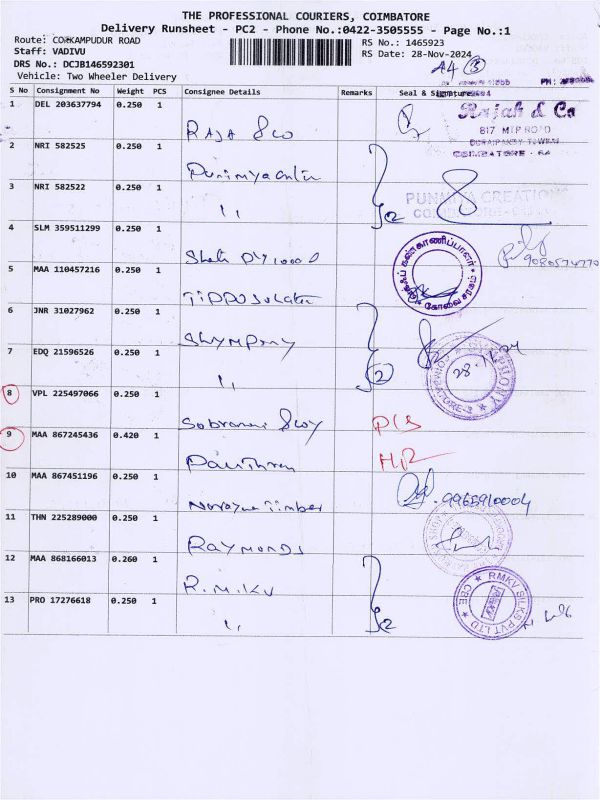 THE PROFESSIONAL COURIERS, COIMBATORE
Delivery Runsheet - PC2 - Phone No.:0422-3505555 - Page No.:1
Route: COKKAMPUDUR ROAD
RS No.: 1465923
Staff: VADIVU
RS Date: 28-Nov-2024
DRS No.: DCJB146592301
A4 3
Vehicle: Two Wheeler Delivery
S No Consignment No Weight PCS Consignee Details Remarks Seal & Signature
1 DEL 203637794 0.250 1 RAJA & CO
Rajah & Co
817 MTP ROAD
COIMBATORE
2 NRI 582525 0.250 1
3 NRI 582522 0.250 1 ,, 2
PUNMIYA CREATIONS
4 SLM 359511299 0.250 1
9080574770
5 MAA 110457216 0.250 1
கோவை சரகம்
6 JNR 31027962 0.250 1 Shymphony
7 EDQ 21596526 0.250 1 ,, 2
28.11.24
SYMPHONY
8 VPL 225497066 0.250 1
9 MAA 867245436 0.420 1
10 MAA 867451196 0.250 1 Narayna Timber 9965910004
11 THN 225289000 0.250 1 RAYMONDS
12 MAA 868166013 0.260 1 R.M.KV
RMKV SILKS PVT LTD
CBE
13 PRO 17276618 0.250 1 ,, 2